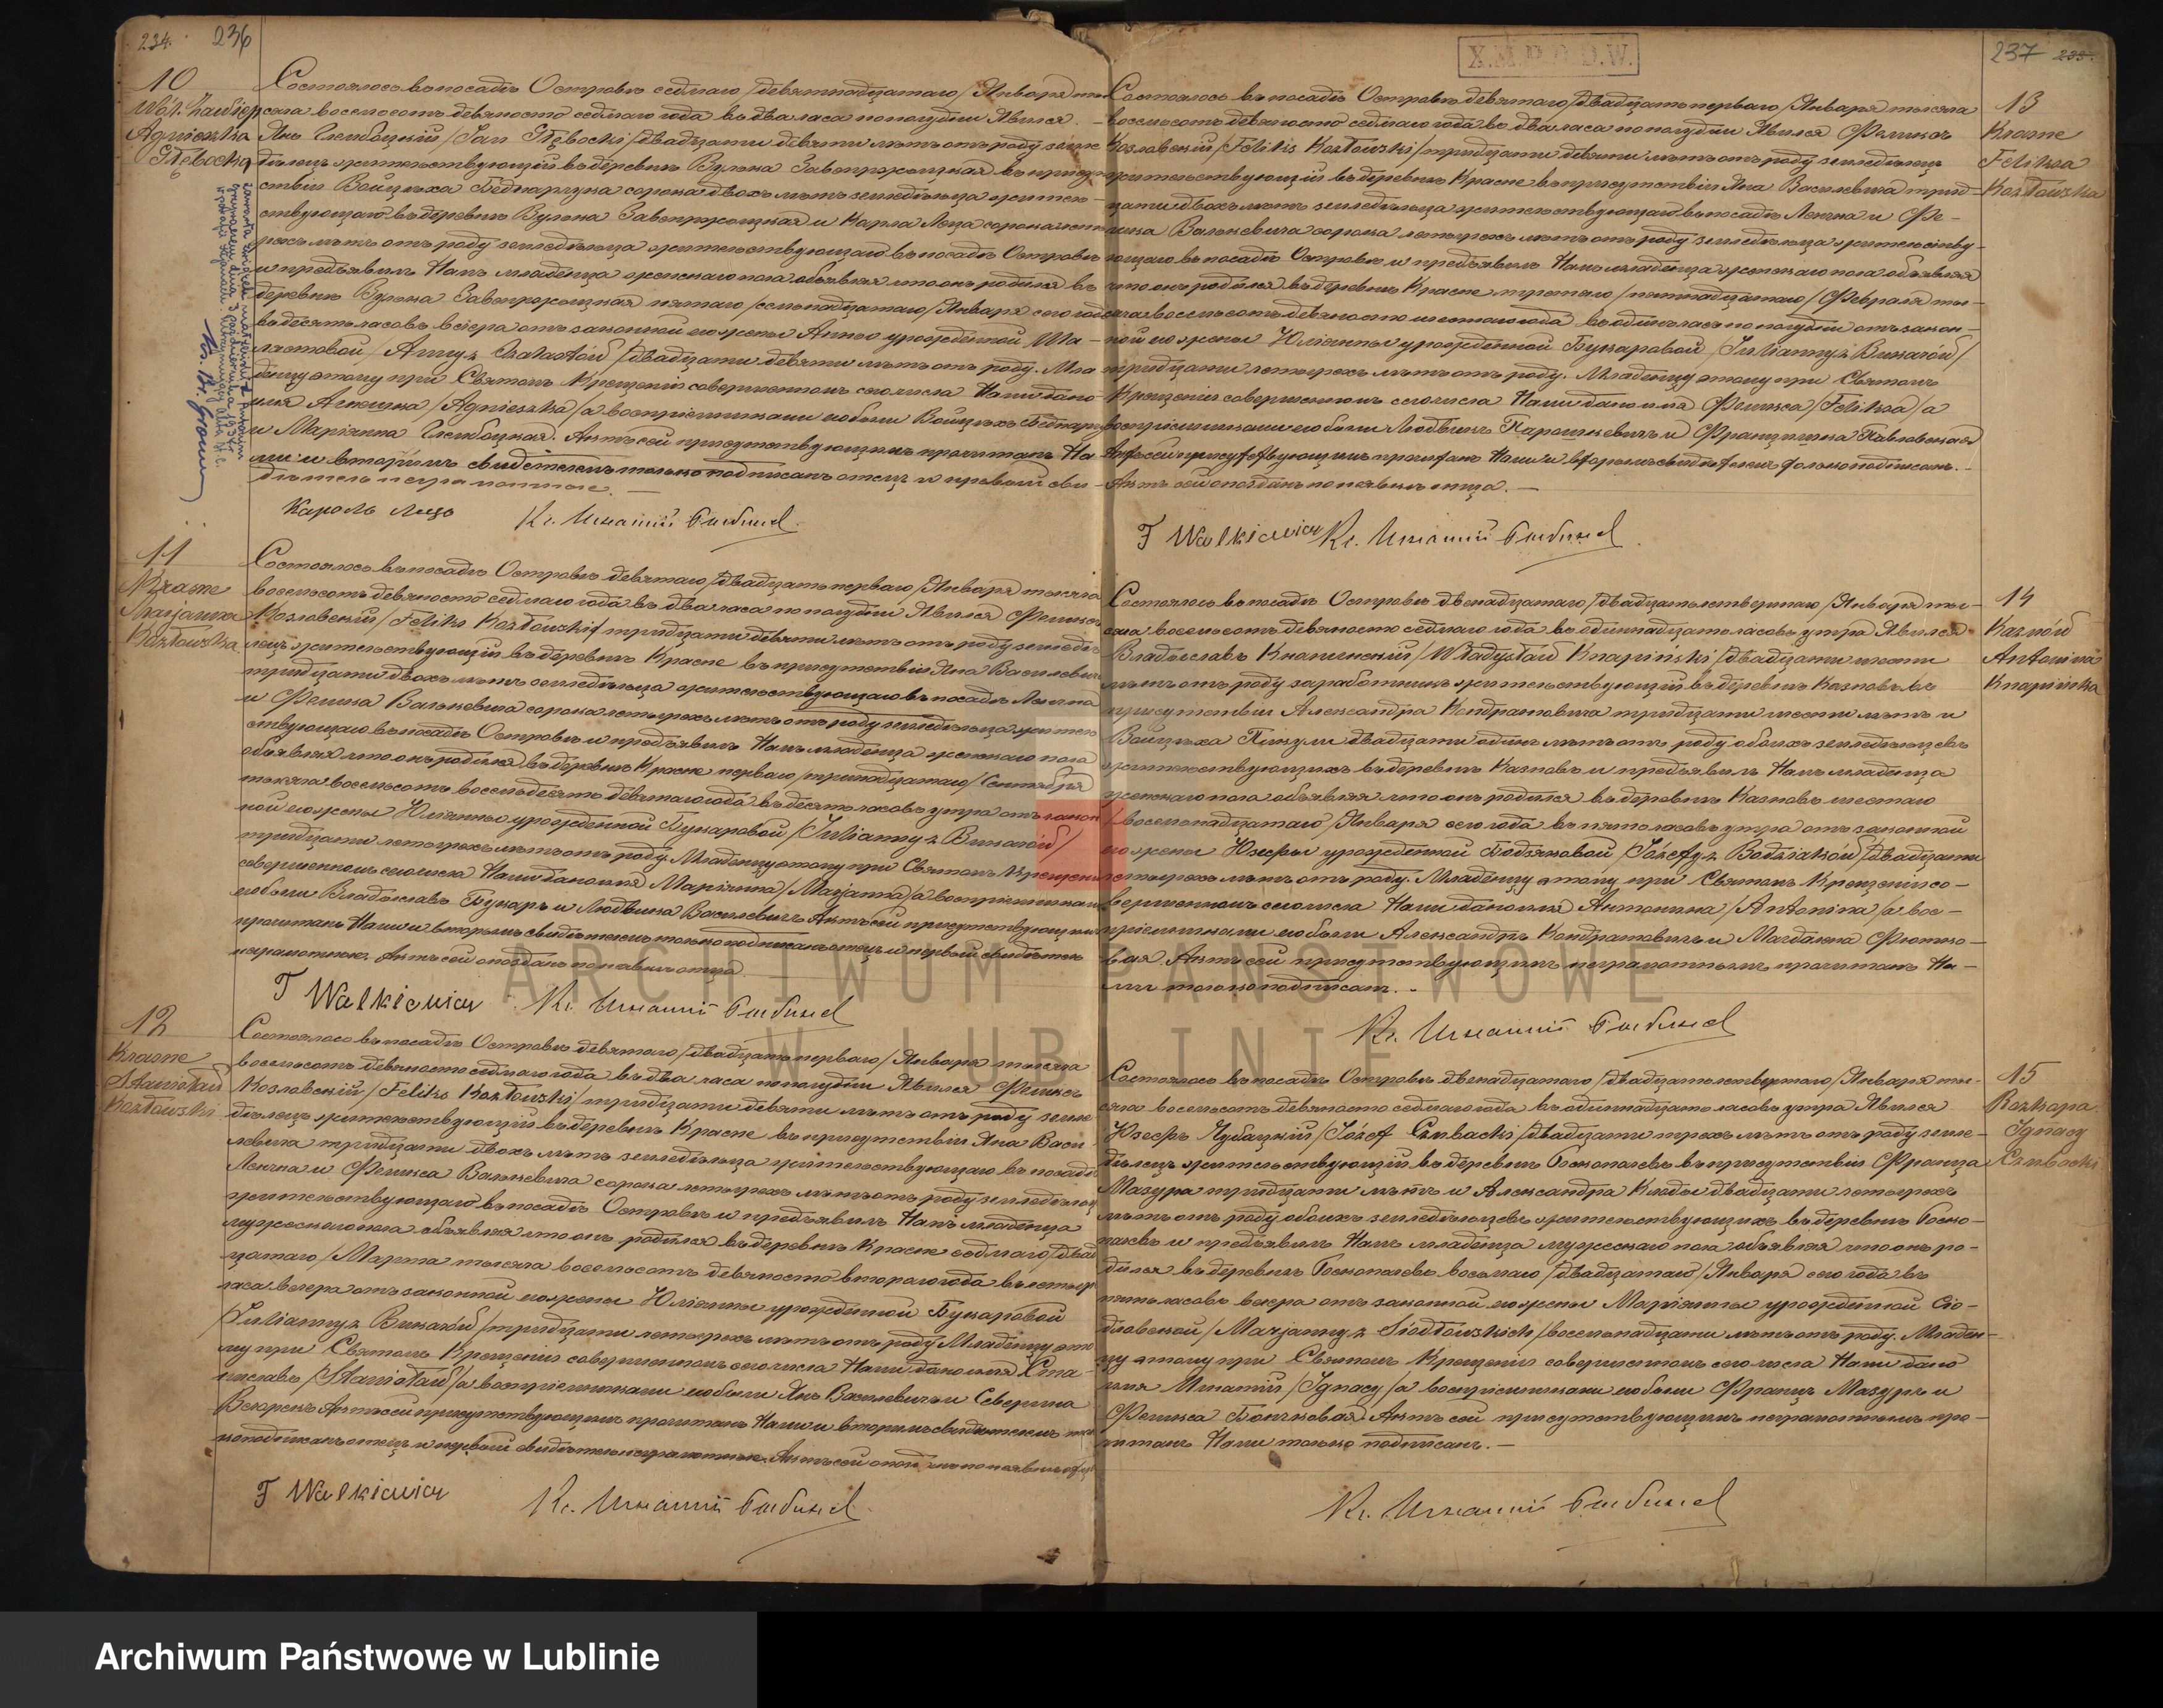 234. 236
10
Wól. Zawiep
Agnieszka
Głębocka
Состоялось въ посадѣ Островѣ седьмаго /девятнадцатаго/ Января ты-
сяча восемьсотъ девяносто седьмаго года въ два часа по полудни. Явился
Янъ Глембоцкій /Jan Głębocki/ двадцати девяти лѣтъ отъ роду земле-
дѣлецъ жительствующій въ деревнѣ Вулька Завепржицкая въ присут-
ствіи Войцѣха Беднарчука сорока двохъ лѣтъ земледѣльца житель-
ствующаго въ деревнѣ Вулька Завепржицкая и Кароля Леца сорока четы-
рехъ лѣтъ отъ роду земледѣльца жительствующаго въ посадѣ Островѣ
и предъявилъ Намъ младенца женскаго пола объявляя что онъ родился въ
деревнѣ Вулька Завепржицкая пятаго /семнадцатаго/ Января сего года
въ десять часовъ вечера отъ законной его жены Анны урожденной Ша-
ластовой /Anny z Szalastów/ двадцати девяти лѣтъ отъ роду. Мла-
денцу этому при Святомъ Крещеніи совершенномъ сего числа Нами дано
имя Агнешка /Agnieszka/ а воспріемниками его были Войцѣхъ Беднарчукъ
и Маріанна Глембоцкая. Актъ сей присутствующимъ прочитанъ На-
ми и вторымъ свидетелемъ только подписанъ отецъ и первый сви-
дѣтель неграмотные. —
Кароль Лецъ Кс. Игнатій
11
Krasne
Marjanna
Kozłowska
Состоялось въ посадѣ Островѣ девятаго /двадцать перваго/ Января тысяча
восемьсотъ девяносто седьмаго года въ два часа по полудни. Явился Феликсъ
Козловскій /Feliks Kozłowski/ тридцати девяти лѣтъ отъ роду земледѣ-
лецъ жительствующій въ деревнѣ Красне въ присутствіи Яна Василевича
тридцати двохъ лѣтъ земледѣльца жительствующаго въ посадѣ Ленчна
и Феликса Валькевича сорока четырехъ лѣтъ отъ роду земледѣльца житель-
ствующаго въ посадѣ Островѣ и предъявилъ Намъ младенца женскаго пола
объявляя что онъ родился въ деревнѣ Красне перваго /тринадцатаго/ Сентября
тысяча восемьсотъ восемьдесятъ девятаго года въ десять часовъ утра отъ закон-
ной его жены Юліанны урожденной Букаровой /Julianny z Bukarów/
тридцати четырехъ лѣтъ отъ роду. Младенцу этому при Святомъ Крещеніи
совершенномъ сего числа Нами дано имя Маріанна /Marjanna/ а воспріемниками
его были Владиславъ Букаръ и Людвика Василевичъ. Актъ сей присутствующимъ
прочитанъ Нами и вторымъ свидѣтелемъ только подписанъ отецъ и первый свидѣтель
неграмотные. Актъ сей опозданъ по неявкѣ отца.
F Walkiewicz Кс. Игнатій
12
Krasne
Stanisław
Kozłowski
Состоялось въ посадѣ Островѣ девятаго /двадцать перваго/ Января тысяча
восемьсотъ девяносто седьмаго года въ два часа по полудни. Явился Феликсъ
Козловскій /Feliks Kozłowski/ тридцати девяти лѣтъ отъ роду земле-
дѣлецъ жительствующій въ деревнѣ Красне въ присутствіи Яна Васи-
левича тридцати двохъ лѣтъ земледѣльца жительствующаго въ посадѣ
Ленчна и Феликса Валькевича сорока четырехъ лѣтъ отъ роду земледѣльца
жительствующаго въ посадѣ Островѣ и предъявилъ Намъ младенца
мужескаго пола объявляя что онъ родился въ деревнѣ Красне седьмаго /двад-
цатаго/ Марта тысяча восемьсотъ девяносто втораго года въ четыре
часа вечера отъ законной его жены Юліанны урожденной Букаровой
/Julianny z Bukarów/ тридцати четырехъ лѣтъ отъ роду. Младенцу это-
му при Святомъ Крещеніи совершенномъ сего числа Нами дано имя Ста-
ниславъ /Stanisław/ а воспріемниками его были Янъ Василевичъ и Северина
Актъ сей присутствующимъ прочитанъ Нами и вторымъ свидѣтелемъ толь-
ко подписанъ отецъ и первый свидѣтель неграмотные. Актъ сей опозданъ по неявкѣ отца
F Walkiewicz Кс. Игнатій
X.M.P.O.D.W.
237 235.
13
Krasne
Feliksa
Kozłowska
Состоялось въ посадѣ Островѣ девятаго /двадцать перваго/ Января тысяча
восемьсотъ девяносто седьмаго года въ два часа по полудни. Явился Феликсъ
Козловскій /Feliks Kozłowski/ тридцати девяти лѣтъ отъ роду земледѣлецъ
жительствующій въ деревнѣ Красне въ присутствіи Яна Василевича трид-
цати двохъ лѣтъ земледѣльца жительствующаго въ посадѣ Ленчна и Фе-
ликса Валькевича сорока четырехъ лѣтъ отъ роду земледѣльца жительству-
ющаго въ посадѣ Островѣ и предъявилъ Намъ младенца женскаго пола объявляя
что онъ родился въ деревнѣ Красне третьяго /пятнадцатаго/ Февраля ты-
сяча восемьсотъ девяносто шестаго года въ одинъ часъ по полудни отъ закон-
ной его жены Юліанны урожденной Букаровой /Julianny z Bukarów/
тридцати четырехъ лѣтъ отъ роду. Младенцу этому при Святомъ
Крещеніи совершенномъ сего числа Нами дано имя Феликса /Feliksa/ а
воспріемниками его были Людвикъ и Францишка Павловская
Актъ сей присутствующимъ прочитанъ Нами и вторымъ свидѣтелемъ только подписанъ. —
Актъ сей опозданъ по неявкѣ отца. —
F Walkiewicz Кс. Игнатій
14
Kaznów
Antonina
Knapińska
Состоялось въ посадѣ Островѣ двенадцатаго /двадцать четвертаго/ Января ты-
сяча восемьсотъ девяносто седьмаго года въ одиннадцать часовъ утра. Явился
Владиславъ Кнапинскій /Władysław Knapiński/ двадцати шести
лѣтъ отъ роду заработникъ жительствующій въ деревнѣ Казновъ въ
присутствіи Александра Кондратовича тридцати шести лѣтъ и
Войцѣха Пикули двадцати одинъ лѣтъ отъ роду обоихъ земледѣльцевъ
жительствующихъ въ деревнѣ Казновъ и предъявилъ Намъ младенца
женскаго пола объявляя что онъ родился въ деревнѣ Казновъ шестаго
/восемнадцатаго/ Января сего года въ пять часовъ утра отъ законной
его жены Юзефы урожденной Бодзяковой /Józefy z Bodziaków/ двадцати
четырехъ лѣтъ отъ роду. Младенцу этому при Святомъ Крещеніи со-
вершенномъ сего числа Нами дано имя Антонина /Antonina/ а вос-
пріемниками его были Александръ Кондратовичъ и Магдалена
Актъ сей присутствующимъ неграмотнымъ прочитанъ На-
ми только подписанъ. -
Кс. Игнатій
15
Rozkopa.
Ignacy
Czubacki
Состоялось въ посадѣ Островѣ двенадцатаго /двадцать четвертаго/ Января ты-
сяча восемьсотъ девяносто седьмаго года въ одиннадцать часовъ утра. Явился
Юзефъ Чубацкій /Józef Czubacki/ двадцати трехъ лѣтъ отъ роду земле-
дѣлецъ жительствующій въ деревнѣ въ присутствіи Франца
Мазура тридцати лѣтъ и Александра Клоды двадцати четырехъ
лѣтъ отъ роду обоихъ земледѣльцевъ жительствующихъ въ деревнѣ
и предъявилъ Намъ младенца мужескаго пола объявляя что онъ ро-
дился въ деревнѣ восьмаго /двадцатаго/ Января сего года въ
пять часовъ вечера отъ законной его жены Маріанны урожденной Сіо-
дловской /Marjanny z Siodłowskich/ восемнадцати лѣтъ отъ роду. Младен-
цу этому при Святомъ Крещеніи совершенномъ сего числа Нами дано
имя Игнатій /Ignacy/ а воспріемниками его были Францъ Мазуръ и
Феликса Актъ сей присутствующимъ неграмотнымъ про-
читанъ Нами только подписанъ. —
Кс. Игнатій
ARCHIWUM PAŃSTWOWE
W LUBLINIE
Archiwum Państwowe w Lublinie